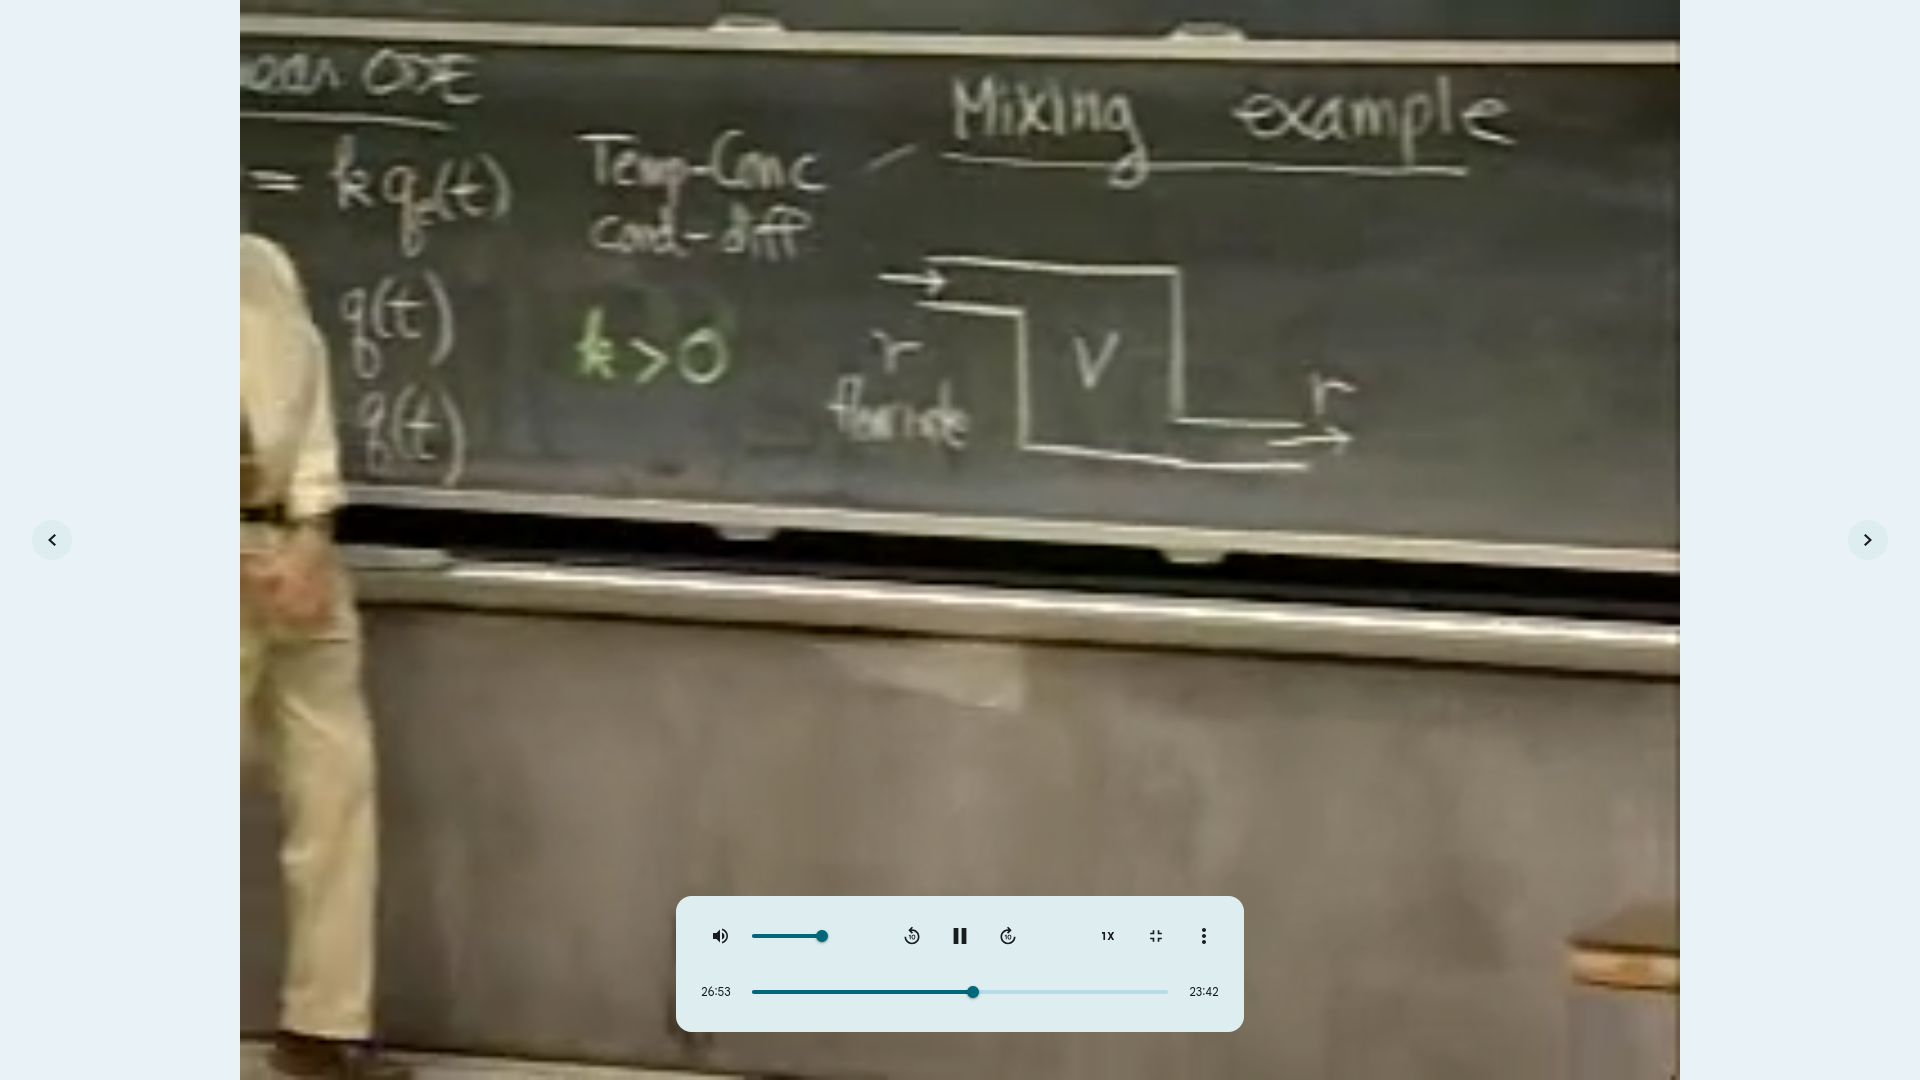 ear ODE
= k qe(t)
q(t)
q(t)
Temp-Conc
Cond-diff
k > 0
Mixing example
r
flow rate
V
r
1X
26:53
23:42